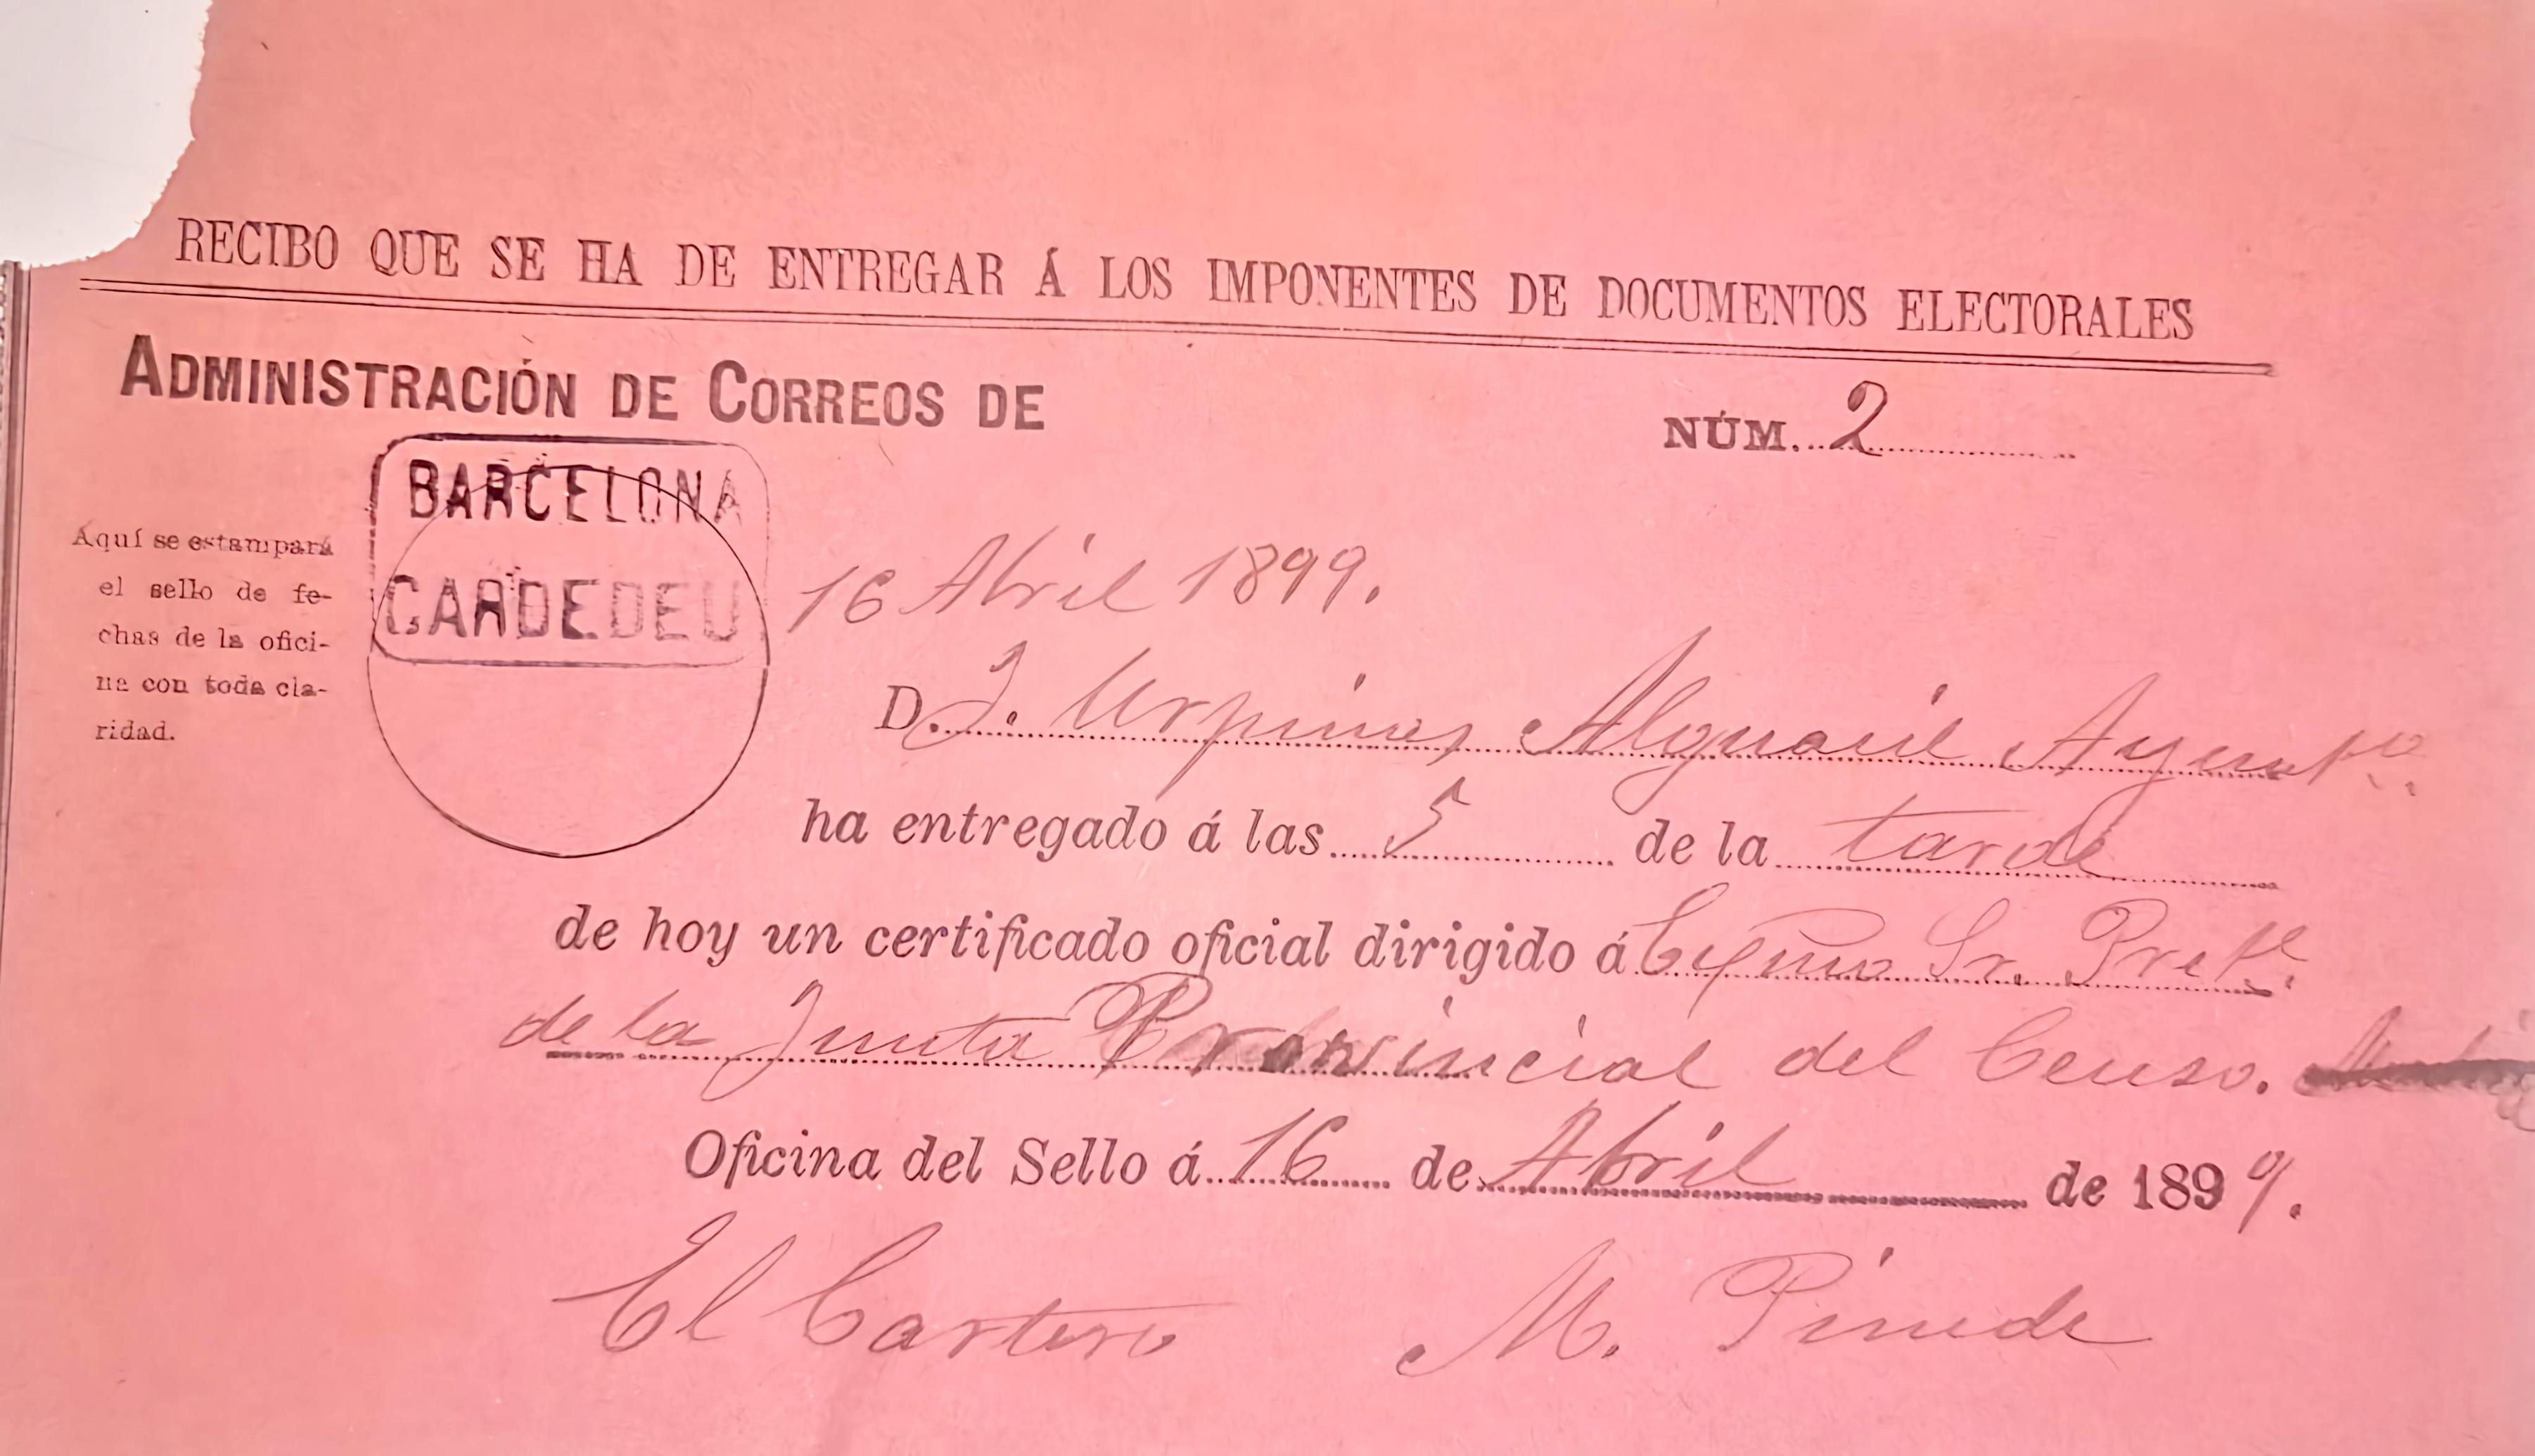 RECIBO QUE SE HA DE ENTREGAR Á LOS IMPONENTES DE DOCUMENTOS ELECTORALES
ADMINISTRACIÓN DE CORREOS DE
NÚM. 2
BARCELONA
CARDEDEU
Aquí se estampará
el sello de fe-
chas de la ofici-
na con toda cla-
ridad.
16 Abril 1899.
D. J. Urpinas Alguacil Ayunto.
ha entregado á las 5 de la tarde
de hoy un certificado oficial dirigido á Exmo Sr. Preste.
de la Junta Provincial del Censo.
Oficina del Sello á 16 de Abril de 1899.
El Cartero M. Pineda